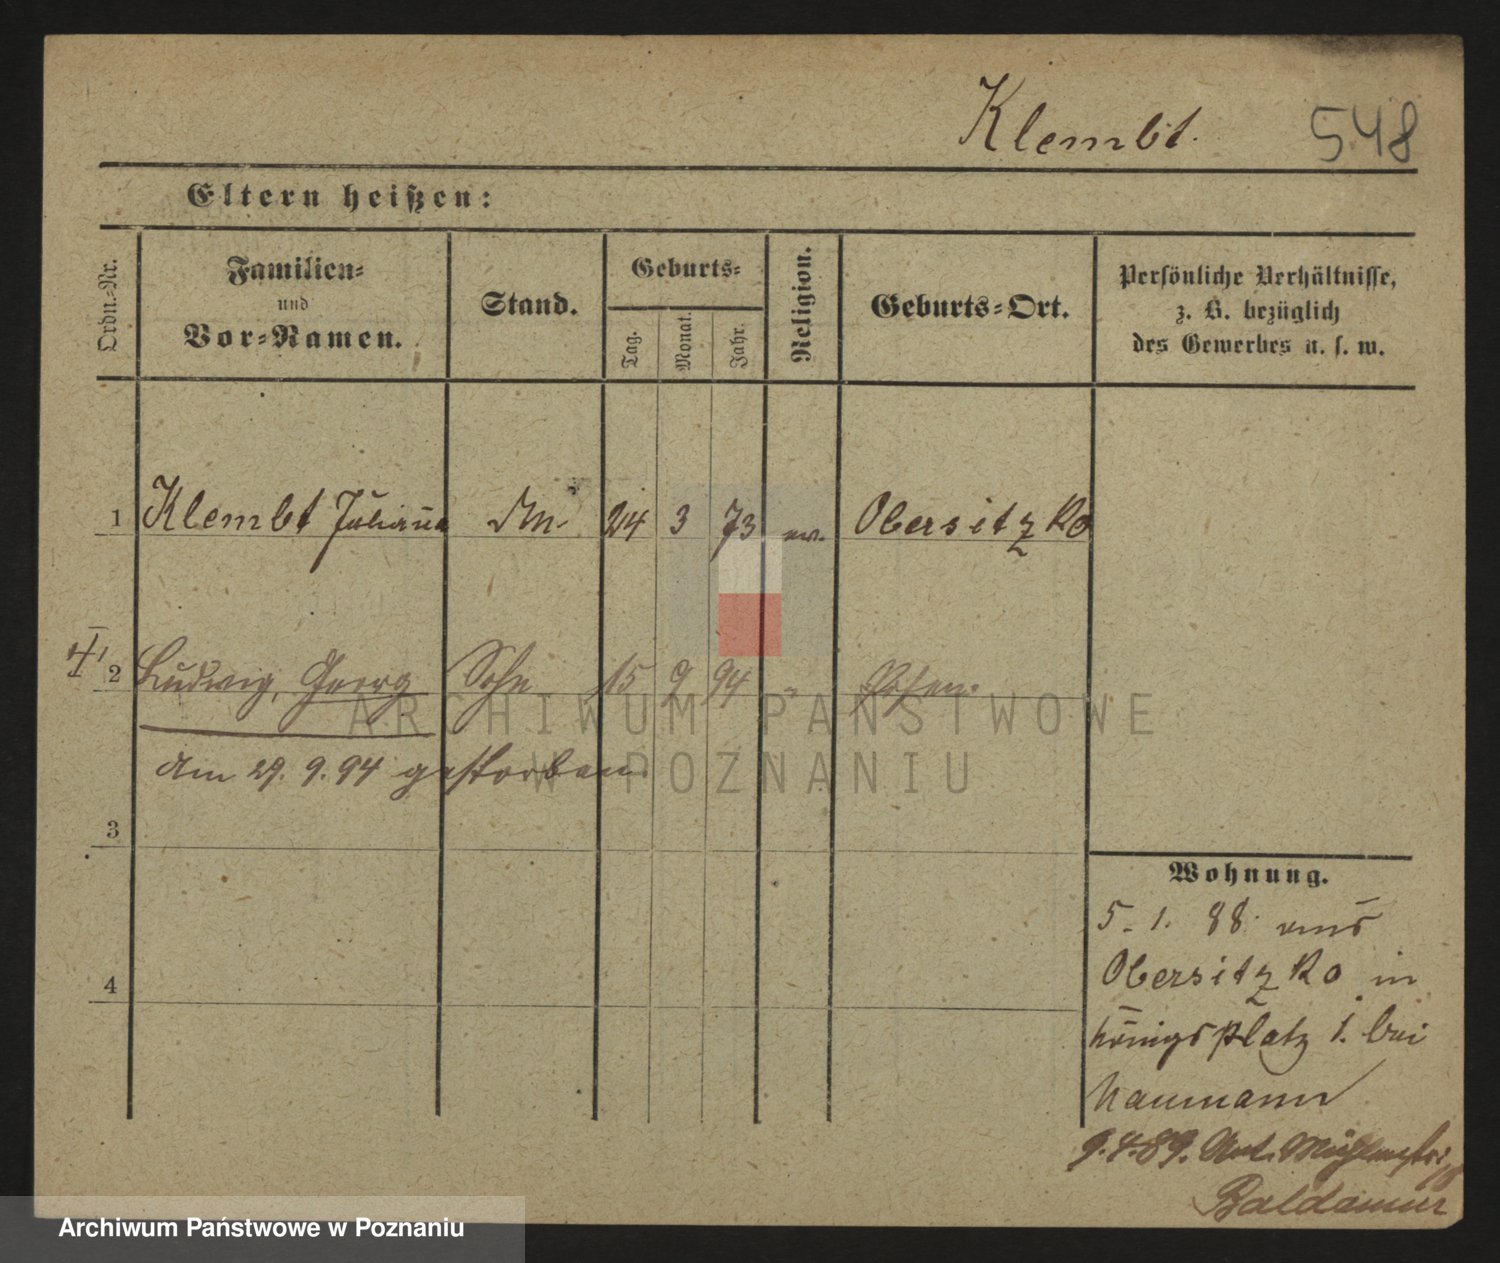 Klembt. 548
Eltern heißen:
Ordn.-Nr.
Familien-
und
Vor-Namen.
Stand.
Geburts-
Tag.
Monat.
Jahr.
Religion.
Geburts-Ort.
Persönliche Verhältnisse,
z. B. bezüglich
des Gewerbes u. s. w.
1 Klembt Juliana 24 3 73 ev. Obersitzko
2 Ludwig, Georg Sohn 15 9 94 " Posen.
am 29. 9. 94 gestorben.
3
4
Wohnung.
5. 1. 88 aus
Obersitzko in
Königsplatz 1. bei
Naumann
9.4.89. Unt. Mühlenstr
Baldamus
ARCHIWUM PAŃSTWOWE
W POZNANIU
Archiwum Państwowe w Poznaniu